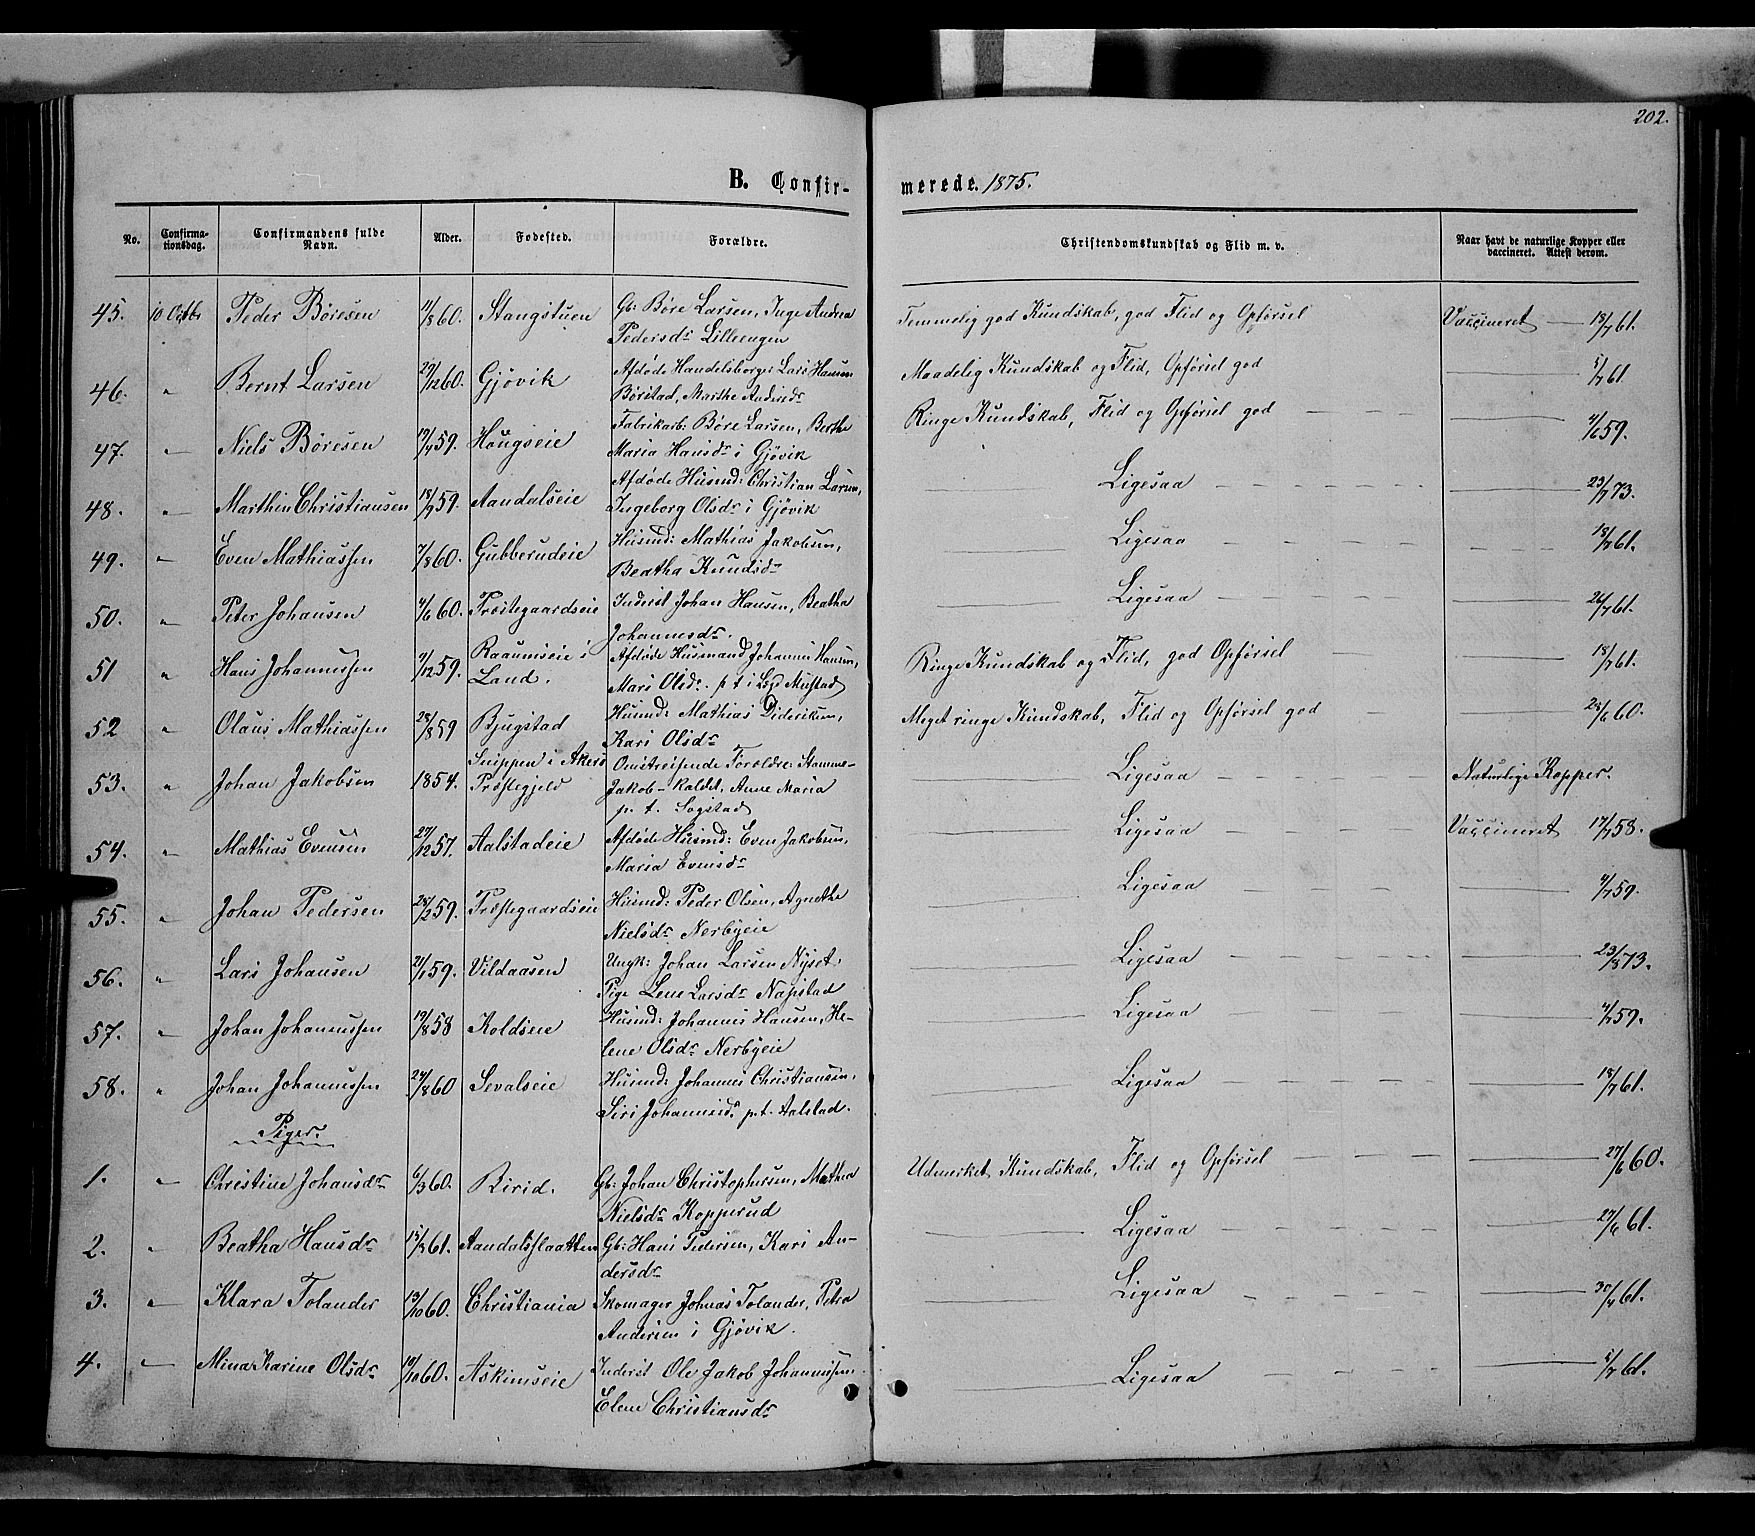 202.
B. Confir-
merede. 1875.
No.
Confirma-
tionsdag.
Confirmandens fulde
Navn.
Alder.
Fødested.
Forældre.
Christendomskundskab og Flid m. v.
Naar havt de naturlige Kopper eller
vaccineret. Attest derom.
45. 10 Octbr Peder Børesen 11/8 60. Stangstuen Gb: Børe Larsen, Inge Andrea
Pedersdr Lilleengen
Temmelig god Kundskab, god Flid og Opførsel Vaccineret 18/7 61.
46. " Bernt Larsen 29/12 60. Gjøvik Afdøde Handelsborger Lars Hansen
Børstad, Marthe Andersdr
Maadelig Kundskab og Flid, Opførsel god 5/7 61.
47. " Niels Børesen 19/4 59. Hougseie Fabrikarb: Børe Larsen, Berthe
Maria Hansdr i Gjøvik
Ringe Kundskab, Flid og Opførsel god 4/6 59.
48. " Marthin Christiansen 18/9 59. Aandalseie Afdøde Husmd: Christian Larsen,
Ingeborg Olsdr i Gjøvik
Ligesaa 23/7 73.
49. " Even Mathiassen 7/8 60. Gubberudeie Husmd: Mathias Jakobsen,
Beatha Knudsdr
Ligesaa 18/7 61.
50. " Peter Johansen 4/6 60. Præstegaardseie Inderst Johan Hansen, Beatha
Johannesdr.
Ligesaa 26/7 61.
51 " Hans Johannessen 4/12 59. Raaumseie i
Land. Afdøde Husmand Johannes Hansen,
Mari Olsdr. p t i Lægd Mustad
Ringe Kundskab og Flid, god Opførsel 18/7 61.
52 " Olaus Mathiassen 28/8 59 Bjugstad Husmd: Mathias Dideriksen,
Kari Olsdr
Meget ringe Kundskab, Flid og Opførsel god 28/6 60.
53. " Johan Jakobsen 1854. Snippen i Akers
Præstegjeld Omstreifende Forældre: Stamme-
Jakob- kaldet, Anne Maria
p. t. Sogstad
Ligesaa Naturlige Kopper.
54. " Mathias Evensen 27/12 57. Aalstadeie Afdøde Husmd: Even Jakobsen,
Maria Evensdr
Ligesaa Vaccineret 17/7 58.
55. " Johan Pedersen 28/2 59. Præstegaardseie Husmd: Peder Olsen, Agnethe
Nielsdr Nerbyeie
Ligesaa 4/7 59.
56. " Lars Johansen 21/1 59. Vildaasen Ungk: Johan Larsen Nyset.
Pige Lene Larsdr Næpstad
Ligesaa 23/8 73.
57. " Johan Johannessen 19/8 58 Koldseie Husmd: Johannes Hansen, He-
lene Olsdr Nerbyeie
Ligesaa 4/7 59.
58. " Johan Johannessen 24/8 60 Sevalseie Husmd: Johannes Christiansen,
Siri Johannesdr p.t. Aalstad.
Ligesaa 18/7 61.
Piger.
1. " Christine Johansdr 6/3 60. Birid. Gb: Johan Christophersen, Mathea
Nielsdr Kopperud
Udmerket Kundskab, Flid og Opførsel 27/6 60.
2. " Beatha Hansdr 15/3 61. Aandalsflaatten Gb: Hans Pedersen, Kari An-
dersdr
Ligesaa 27/6 61.
3. " Klara Tolander 13/10 60. Christiania Skomager Johnas Tolander, Petra
Andersen i Gjøvik.
Ligesaa 30/7 61.
4. " Mina Karine Olsdr 10/10 60. Askimseie Inderst Ole Jakob Johannessen
Elene Christiansdr
Ligesaa 5/7 61.